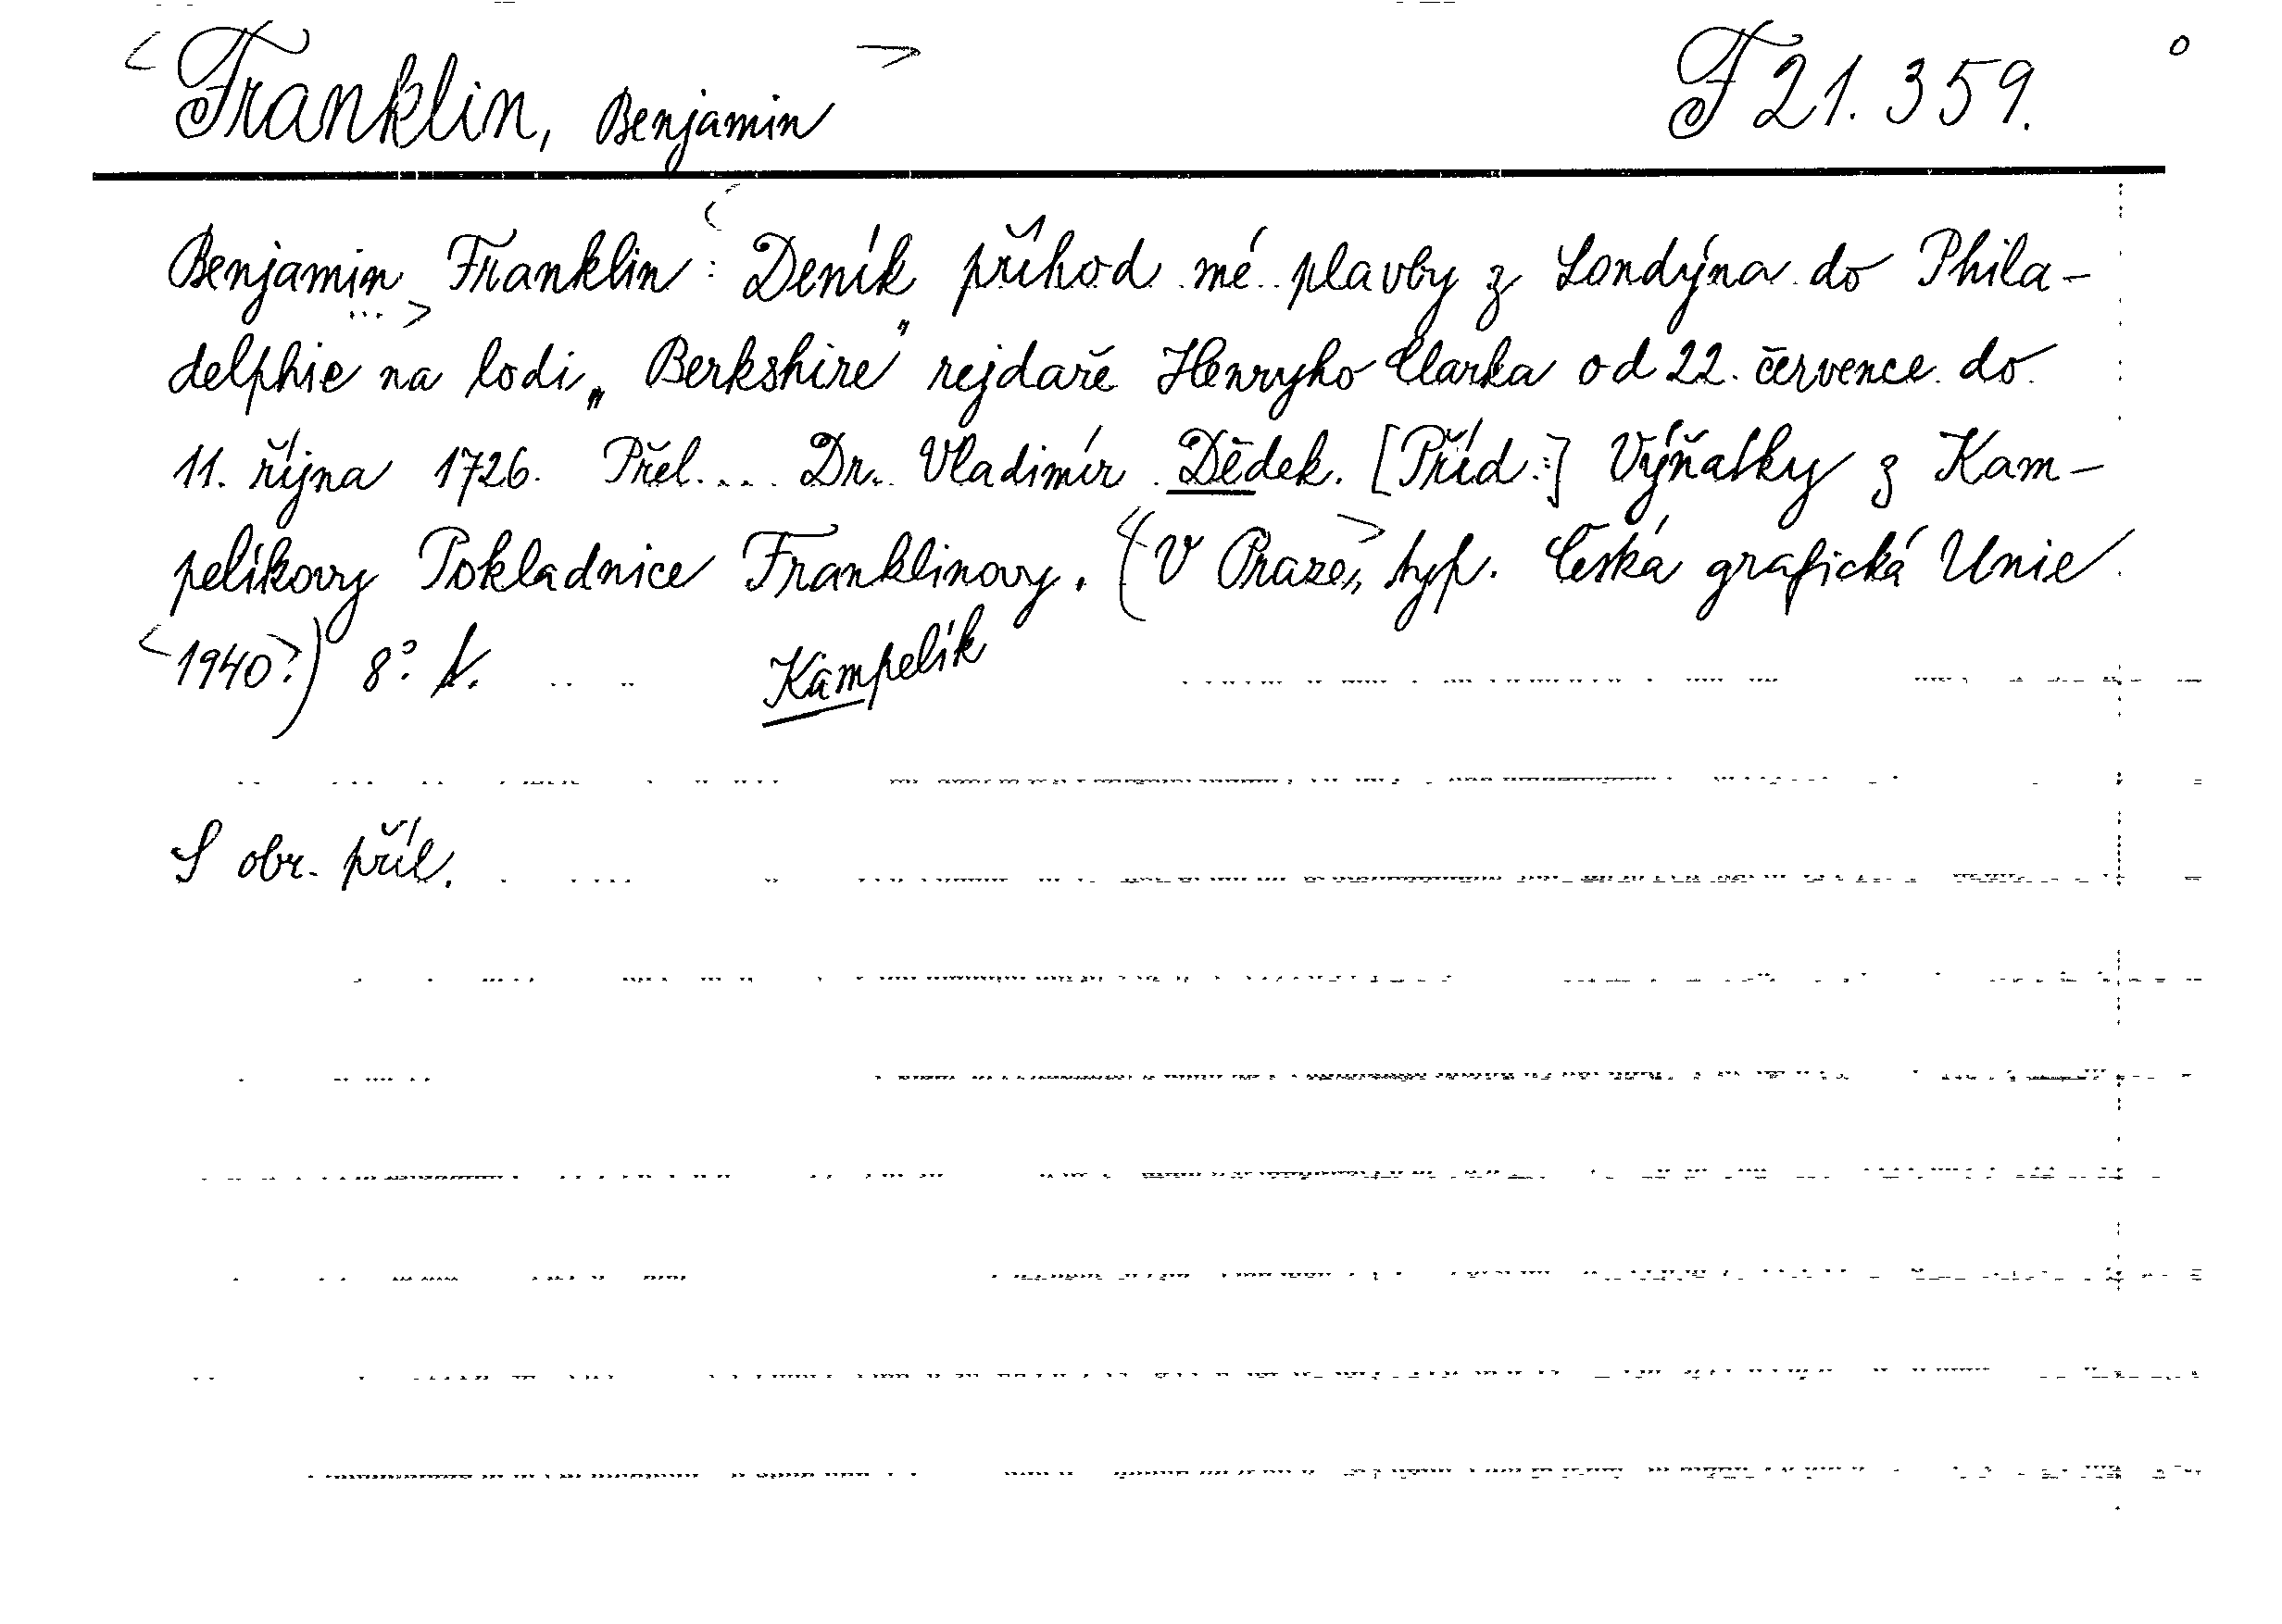 <Franklin, Benjamin> F 21.359. o
Benjamin Franklin: <Deník příhod mé plavby z Londýna do Phila-
delphie ...> na lodi „Berkshire" rejdaře Henryho Clarka od 22. července do
11. října 1726. Přel. ... Dr. Vladimír Dědek. [Příd:] Výňatky z Kam-
pelíkovy Pokladnice Franklinovy. (<V Praze>, typ. Česká grafická Unie
<1940>.) 8°.
Kampelík
S obr. příl.